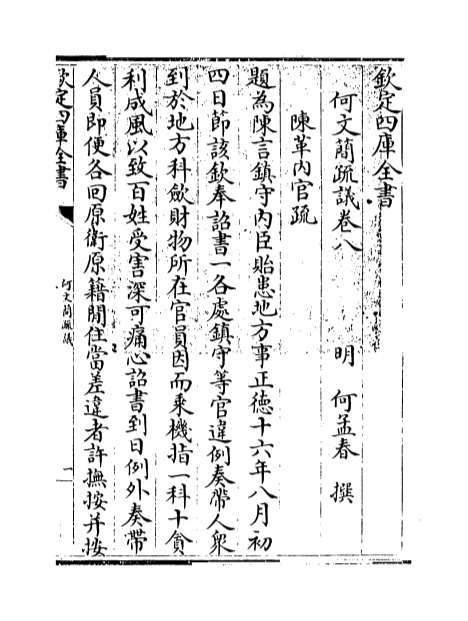 欽定四庫全書
何文簡疏議卷八
明 何孟春 撰
陳革内官疏
題為陳言鎮守内臣貽患地方事正德十六年八月初
四日節該欽奉詔書一各處鎮守等官違例奏帶人衆
到於地方科斂財物所在官員因而乘機指一科十貪
利成風以致百姓受害深可痛心詔書到日例外奏帶
人員即便各回原衛原籍閒住當差違者許撫按并按
欽定四庫全書
何文簡疏議
一